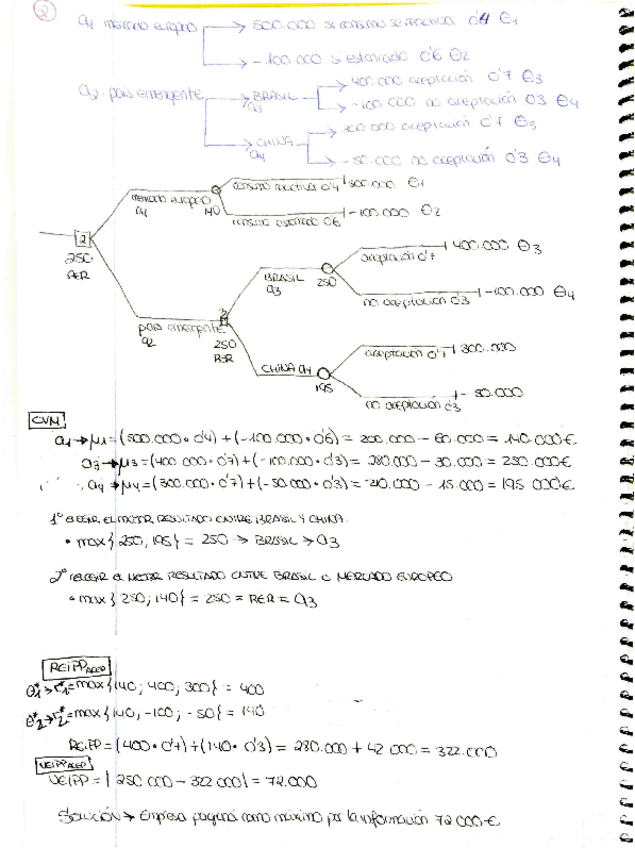 2
a1 mercado europeo → 500.000 si consumo se reactiva 0'4 θ1
→ -100.000 si estancado 0'6 θ2
a2 país emergente → BRASIL a3 → 400.000 aceptación 0'7 θ3
→ -100.000 no aceptación 0'3 θ4
→ CHINA a4 → 300.000 aceptación 0'7 θ3
→ -50.000 no aceptación 0'3 θ4
mercado europeo a1 140 consumo reactiva 0'4 500.000 θ1
consumo estancado 0'6 -100.000 θ2
2
250
RER
BRASIL a3 250 aceptación 0'7 400.000 θ3
no aceptación 0'3 -100.000 θ4
país emergente a2
250
RER
CHINA a4 195 aceptación 0'7 300.000
no aceptación 0'3 - 50.000
CVM
a1 → μ1 = (500.000 • 0'4) + (-100.000 • 0'6) = 200.000 - 60.000 = 140.000€
a3 → μ3 = (400 000 • 0'7) + (-100.000 • 0'3) = 280.000 - 30.000 = 250.000€
a4 → μ4 = (300.000 • 0'7) + (-50.000 • 0'3) = 210.000 - 15.000 = 195 000€
1º ELEGIR EL MEJOR RESULTADO ENTRE BRASIL Y CHINA
• max { 250, 195 } = 250 → BRASIL → a3
2º ELEGIR EL MEJOR RESULTADO ENTRE BRASIL O MERCADO EUROPEO
• max { 250; 140 } = 250 = RER = a3
REIPP ACEP
θ1* → r1* = max { 140; 400; 300 } = 400
θ2* → r2* = max { 140, -100; -50 } = 140
REIPP = (400 • 0'7) + (140 • 0'3) = 280.000 + 42 000 = 322.000
VEIPP ACEP
VEIPP = | 250 000 - 322 000 | = 72.000
Solución → Empresa pagará como máximo por la información 72 000€